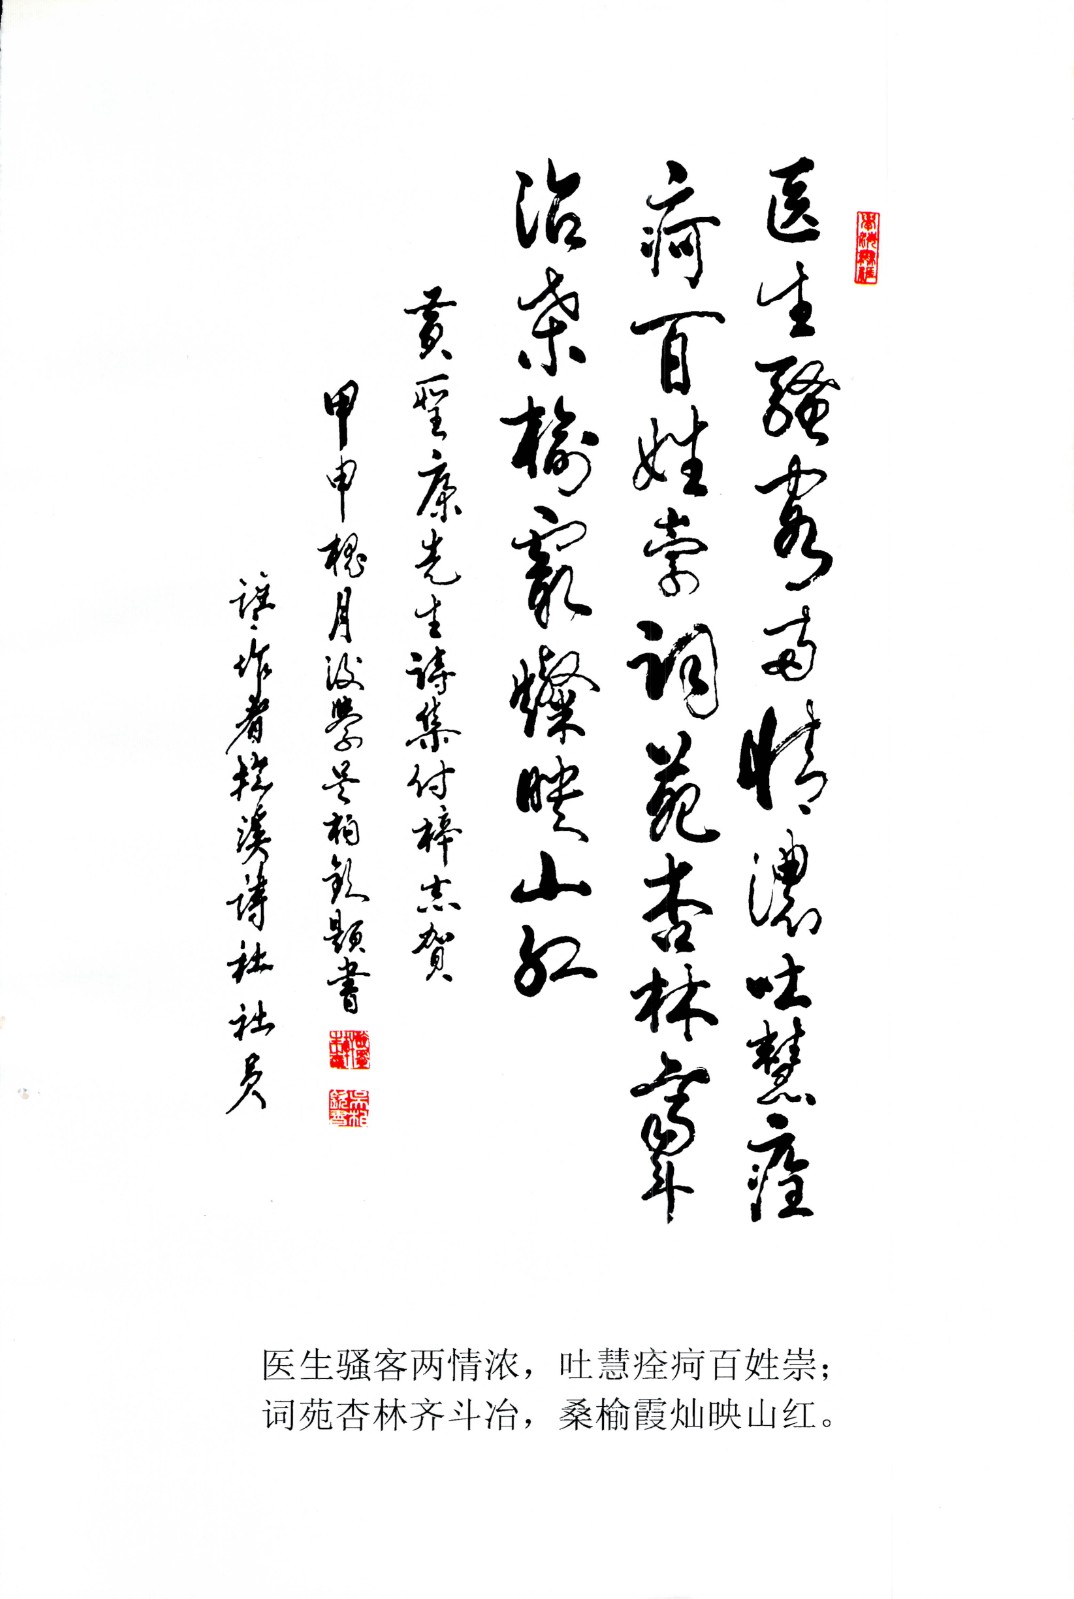 医生骚客两情浓吐慧痊
疴百姓崇词苑杏林齐斗
冶桑榆霞燦映山红
黄聖康先生詩集付梓志贺
甲申槐月後学吴柏欽題書
註作者松溪詩社社员
医生骚客两情浓，吐慧痊疴百姓崇；
词苑杏林齐斗冶，桑榆霞灿映山红。